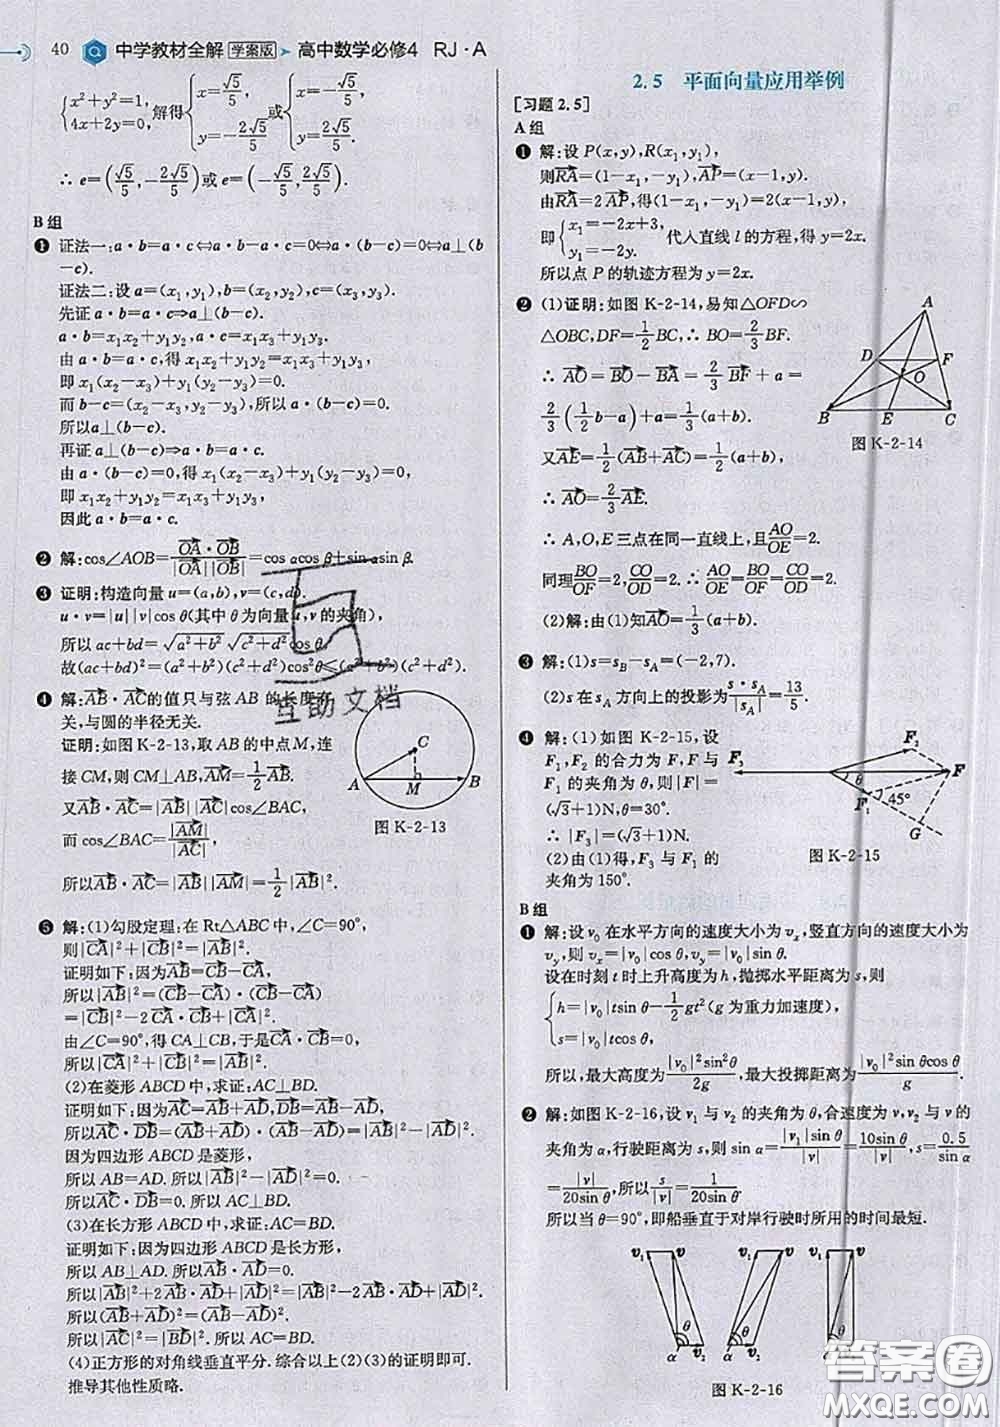 40 中学教材全解 学案版 高中数学必修4 RJ·A
{x²+y²=1, 4x+2y=0, 解得 {x=√5/5, y=-2√5/5 或 {x=-√5/5, y=2√5/5.
∴ e=(√5/5,-2√5/5)或 e=(-√5/5,2√5/5).
B 组
❶ 证法一:a·b=a·c⇔a·b-a·c=0⇔a·(b-c)=0⇔a⊥(b
-c).
证法二:设 a=(x₁,y₁),b=(x₂,y₂),c=(x₃,y₃).
先证 a·b=a·c⇒a⊥(b-c).
a·b=x₁x₂+y₁y₂,a·c=x₁x₃+y₁y₃.
由 a·b=a·c,得 x₁x₂+y₁y₂=x₁x₃+y₁y₃,
即 x₁(x₂-x₃)+y₁(y₂-y₃)=0.
而 b-c=(x₂-x₃,y₂-y₃),所以 a·(b-c)=0.
所以a⊥(b-c).
再证 a⊥(b-c)⇒a·b=a·c.
由 a·(b-c)=0,得 x₁(x₂-x₃)+y₁(y₂-y₃)=0,
即 x₁x₂+y₁y₂=x₁x₃+y₁y₃.
因此 a·b=a·c.
❷ 解:cos∠AOB=OA→·OB→/|OA→||OB→|=cos αcos β+sin αsin β.
❸ 证明:构造向量 u=(a,b),v=(c,d).
u·v=|u||v|cos θ(其中 θ 为向量 u,v 的夹角),
所以 ac+bd=√(a²+b²) √(c²+d²)cos θ.
故(ac+bd)²=(a²+b²)(c²+d²)cos²θ≤(a²+b²)(c²+d²).
❹ 解:AB→·AC→的值只与弦 AB 的长度有
关,与圆的半径无关.
证明:如图 K-2-13,取 AB 的中点 M,连
接 CM,则 CM⊥AB,AM→=1/2 AB→.
又AB→·AC→=|AB→||AC→|cos∠BAC,
而 cos∠BAC=|AM→|/|AC→|,
所以AB→·AC→=|AB→||AM→|=1/2|AB→|².
C
A M B
图 K-2-13
❺ 解:(1)勾股定理:在 Rt△ABC 中,∠C=90°,
则|CA→|²+|CB→|²=|AB→|².
证明如下:因为AB→=CB→-CA→,
所以|AB→|²=(CB→-CA→)²
=CB→²-2CA→·CB→+CA→².
由∠C=90°,得 CA⊥CB,于是CA→·CB→=0,
所以|CA→|²+|CB→|²=|AB→|².
(2)在菱形 ABCD 中,求证:AC⊥BD.
证明如下:因为AC→=AB→+AD→,DB→=AB→-AD→,
所以AC→·DB→=(AB→+AD→)·(AB→-AD→)=AB→²-AD→².
因为四边形 ABCD 为菱形,
所以 AB=AD,所以AB→²-AD→²=0.
所以AC→·DB→=0.所以 AC⊥BD.
(3)在长方形 ABCD 中,求证:AC=BD.
证明如下:因为四边形 ABCD 是长方形,
所以 AB⊥AD.所以AB→·AD→=0.
所以AB→²+2AB→·AD→+AD→²=|AB→|²-2AB→·AD→+AD→².
所以(AB→+AD→)²=(AB→-AD→)².
所以|AC→|²=|BD→|².所以 AC=BD.
(4)正方形的对角线垂直平分.综合以上(2)(3)的证明即可.
推导其他性质略.
2.5 平面向量应用举例
[习题2.5]
A 组
❶ 解:设 P(x,y),R(x₁,y₁),
则RA→=(1-x₁,-y₁),AP→=(x-1,y).
由RA→=2AP→,得(1-x₁,-y₁)=2(x-1,y),
即{x₁=-2x+3, y₁=-2y. 代入直线 l 的方程,得 y=2x.
所以点 P 的轨迹方程为 y=2x.
❷ (1)证明:如图 K-2-14,易知△OFD∽
△OBC,DF=1/2 BC,∴ BO=2/3 BF.
∴ AO→=BO→-BA→=2/3 BF→+a=
2/3(1/2 b-a)+a=1/3(a+b).
又AE→=1/2(AB→+AC→)=1/2(a+b),
∴ AO→=2/3 AE→.
∴ A,O,E 三点在同一直线上,且AO/OE=2.
同理BO/OF=2,CO/OD=2.∴ AO/OE=BO/OF=CO/OD=2.
(2)解:由(1)知AO→=1/3(a+b).
A
D F
O
B E C
图 K-2-14
❸ 解:(1)s=s_B-s_A=(-2,7).
(2)s 在 s_A 方向上的投影为s·s_A/|s_A|=13/5.
❹ 解:(1)如图 K-2-15,设
F₁,F₂的合力为 F,F 与
F₁的夹角为 θ,则|F|=
(√3+1)N,θ=30°.
∴ |F₃|=(√3+1)N.
(2)由(1)得,F₃与 F₁的
夹角为 150°.
F₃ F₂ θ F F₁ 45° G
图 K-2-15
B 组
❶ 解:设 v₀在水平方向的速度大小为 vₓ,竖直方向的速度大小为
v_y,则 vₓ=|v₀|cos θ,v_y=|v₀|sin θ.
设在时刻 t 时上升高度为 h,抛掷水平距离为 s,则
{h=|v₀|tsin θ-1/2 gt²(g 为重力加速度), s=|v₀|tcos θ.
所以,最大高度为|v₀|²sin²θ/2g,最大投掷距离为|v₀|²sin θcos θ/g.
❷ 解:如图 K-2-16,设 v₁与 v₂的夹角为 θ,合速度为 v,v₂与 v 的
夹角为 α,行驶距离为 s,则 sin α=|v₁|sin θ/|v|=10sin θ/|v|,s=0.5/sin α
=|v|/20sin θ,所以s/|v|=1/20sin θ.
所以当 θ=90°,即船垂直于对岸行驶时所用的时间最短.
v₁ v θ α v₂
v₁ v θ α v₂
v₁ v θ α v₂
图 K-2-16
互动文档
答案圈
MXQE.COM